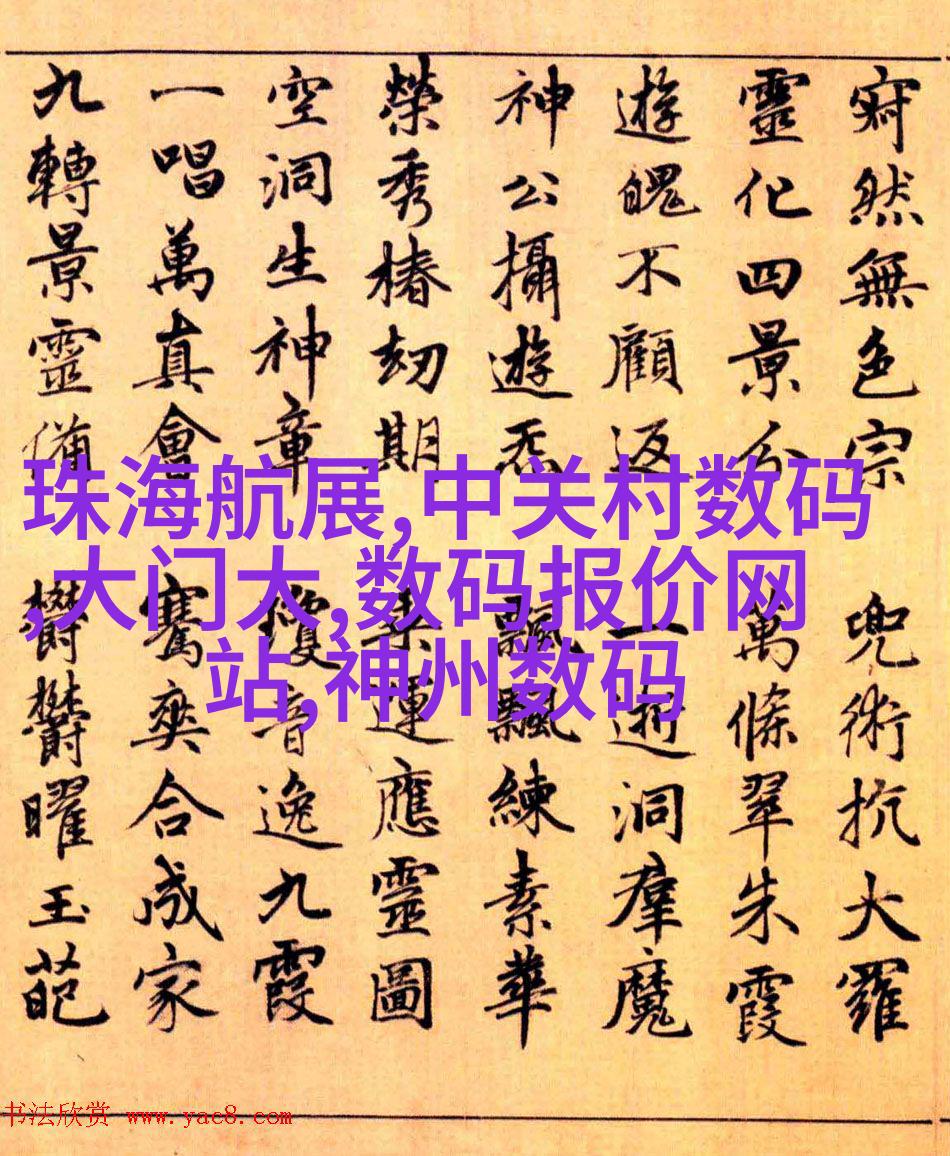 寂然無色宗 兜術抗大羅
靈化四景分 萬條翠朱霞
遊魄不顧返 一逝洞羣魔
神公攝遊炁 飄飄練素華
榮秀椿劫期 運應靈圖
空洞生神章 瓊音逸九霞
一唱萬真會 騫爽合成家
九轉景靈備 鬱鬱曜玉葩
珠海航展,中关村数码
,大门大,数码报价网
站,神州数码
书法欣赏 www.yac8.com